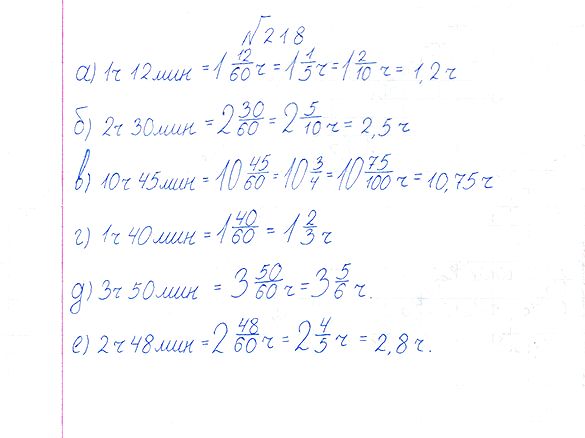 №218
а) 1ч 12мин = 1 12/60 ч = 1 1/5 ч = 1 2/10 ч = 1,2ч
б) 2ч 30мин = 2 30/60 = 2 5/10 ч = 2,5ч
в) 10ч 45мин = 10 45/60 = 10 3/4 = 10 75/100 ч = 10,75ч
г) 1ч 40мин = 1 40/60 = 1 2/3 ч
д) 3ч 50мин = 3 50/60 ч = 3 5/6 ч.
е) 2ч 48мин = 2 48/60 ч = 2 4/5 ч = 2,8ч.